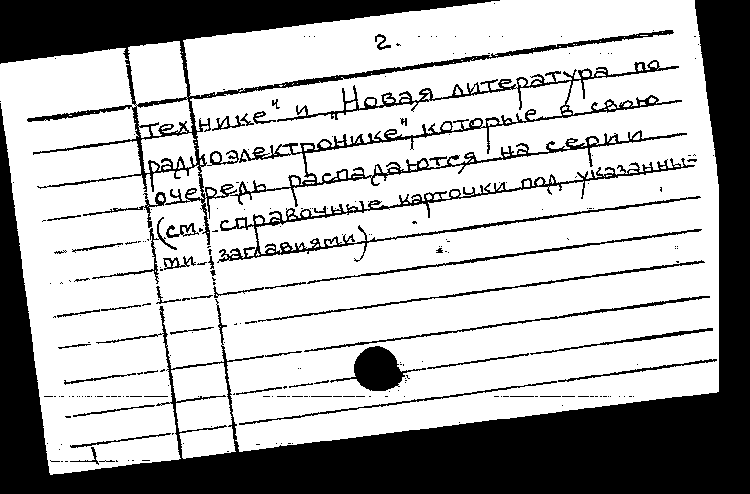 2.
технике" и „Новая литература по
радиоэлектронике", которые в свою
очередь распадаются на серии
(см. справочные карточки под указанны-
ми заглавиями).